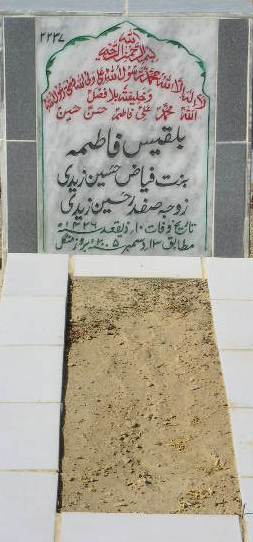 ۲۲۳۷
اللہ
بسم اللہ الرحمن الرحیم
لا الہ الا اللہ محمد رسول اللہ علی ولی اللہ وصی رسول اللہ
و خلیفتہ بلا فصل
اللہ محمد علی فاطمہ حسن حسین
بلقیس فاطمہ
بنت فیاض حسین زیدی
زوجہ صفدر حسین زیدی
تاریخ وفات ۱۰ ذیقعد ۱۴۲۶ھ
مطابق ۱۳ دسمبر ۲۰۰۵ بروز منگل